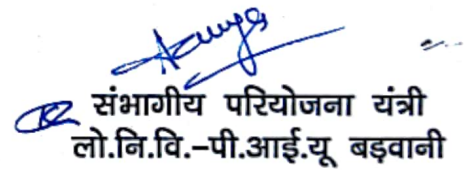 संभागीय परियोजना यंत्री
लो.नि.वि.–पी.आई.यू बड़वानी